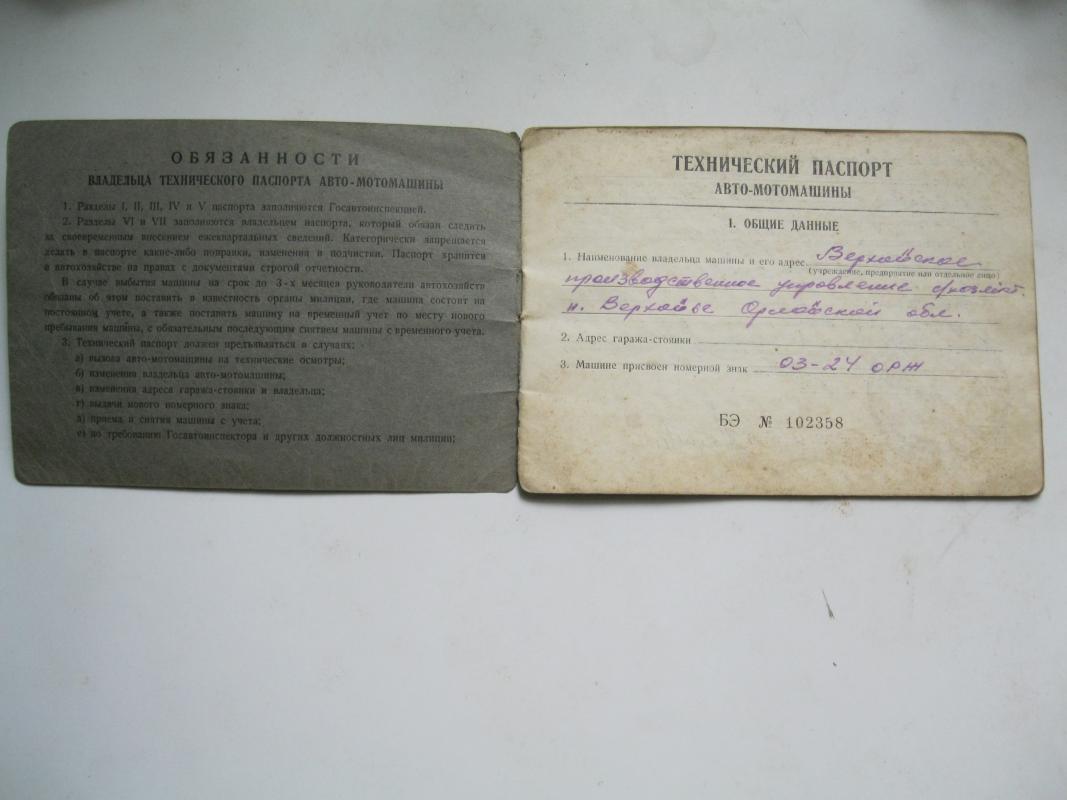 ОБЯЗАННОСТИ
ВЛАДЕЛЬЦА ТЕХНИЧЕСКОГО ПАСПОРТА АВТО-МОТОМАШИНЫ
1. Разделы I, II, III, IV и V паспорта заполняются Госавтоинспекцией.
2. Разделы VI и VII заполняются владельцем паспорта, который обязан следить
за своевременным внесением ежеквартальных сведений. Категорически запрещается
делать в паспорте какие-либо поправки, изменения и подчистки. Паспорт хранится
в автохозяйстве на правах с документами строгой отчетности.
В случае выбытия машины на срок до 3-х месяцев руководители автохозяйств
обязаны об этом поставить в известность органы милиции, где машина состоит на
постоянном учете, а также поставить машину на временный учет по месту нового
пребывания машины, с обязательным последующим снятием машины с временного учета.
3. Технический паспорт должен предъявляться в случаях:
а) вызова авто-мотомашины на технические осмотры;
б) изменения владельца авто-мотомашины;
в) изменения адреса гаража-стоянки и владельца;
г) выдачи нового номерного знака;
д) приема и снятия машины с учета;
е) по требованию Госавтоинспектора и других должностных лиц милиции;
ТЕХНИЧЕСКИЙ ПАСПОРТ
АВТО-МОТОМАШИНЫ
I. ОБЩИЕ ДАННЫЕ
1. Наименование владельца машины и его адрес Верховское
(учреждение, предприятие или отдельное лицо)
производственное управление с/хозяйст
п. Верховье Орловской обл.
2. Адрес гаража-стоянки
3. Машине присвоен номерной знак 03-24 ОРЖ
БЭ № 102358